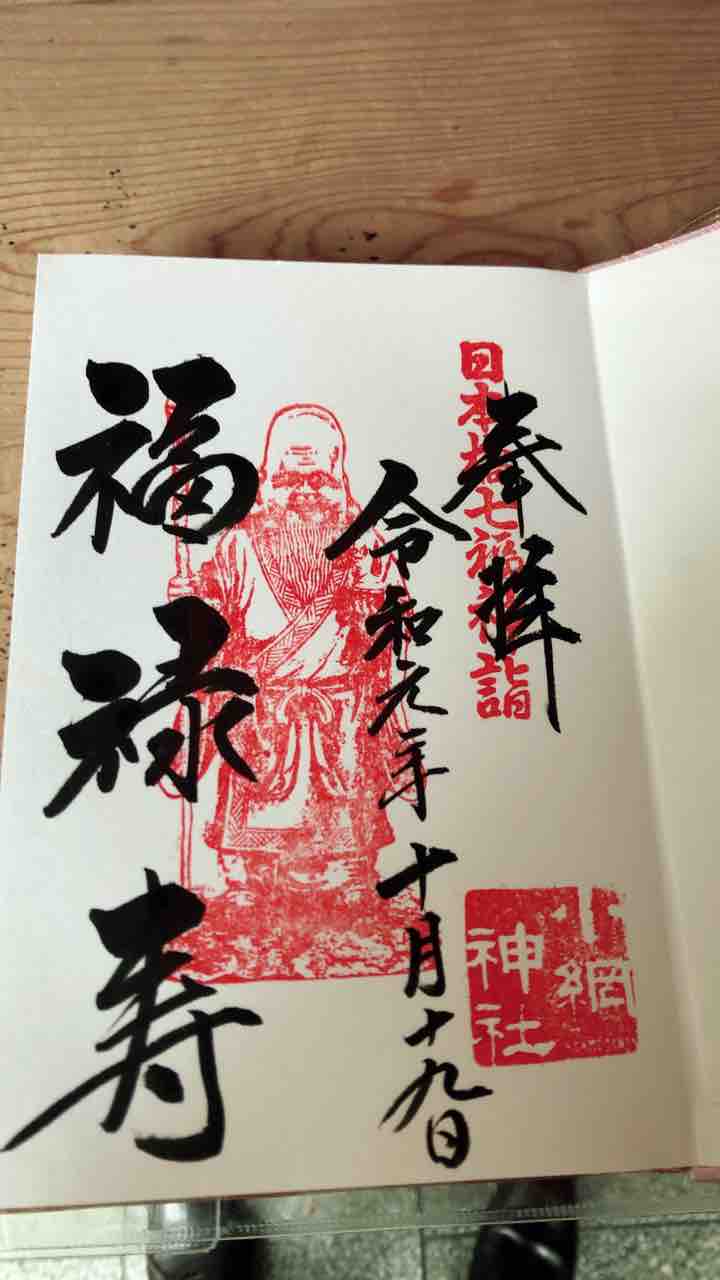 奉拝
日本橋七福神詣
小網
神社
令和元年十月十九日
福禄寿